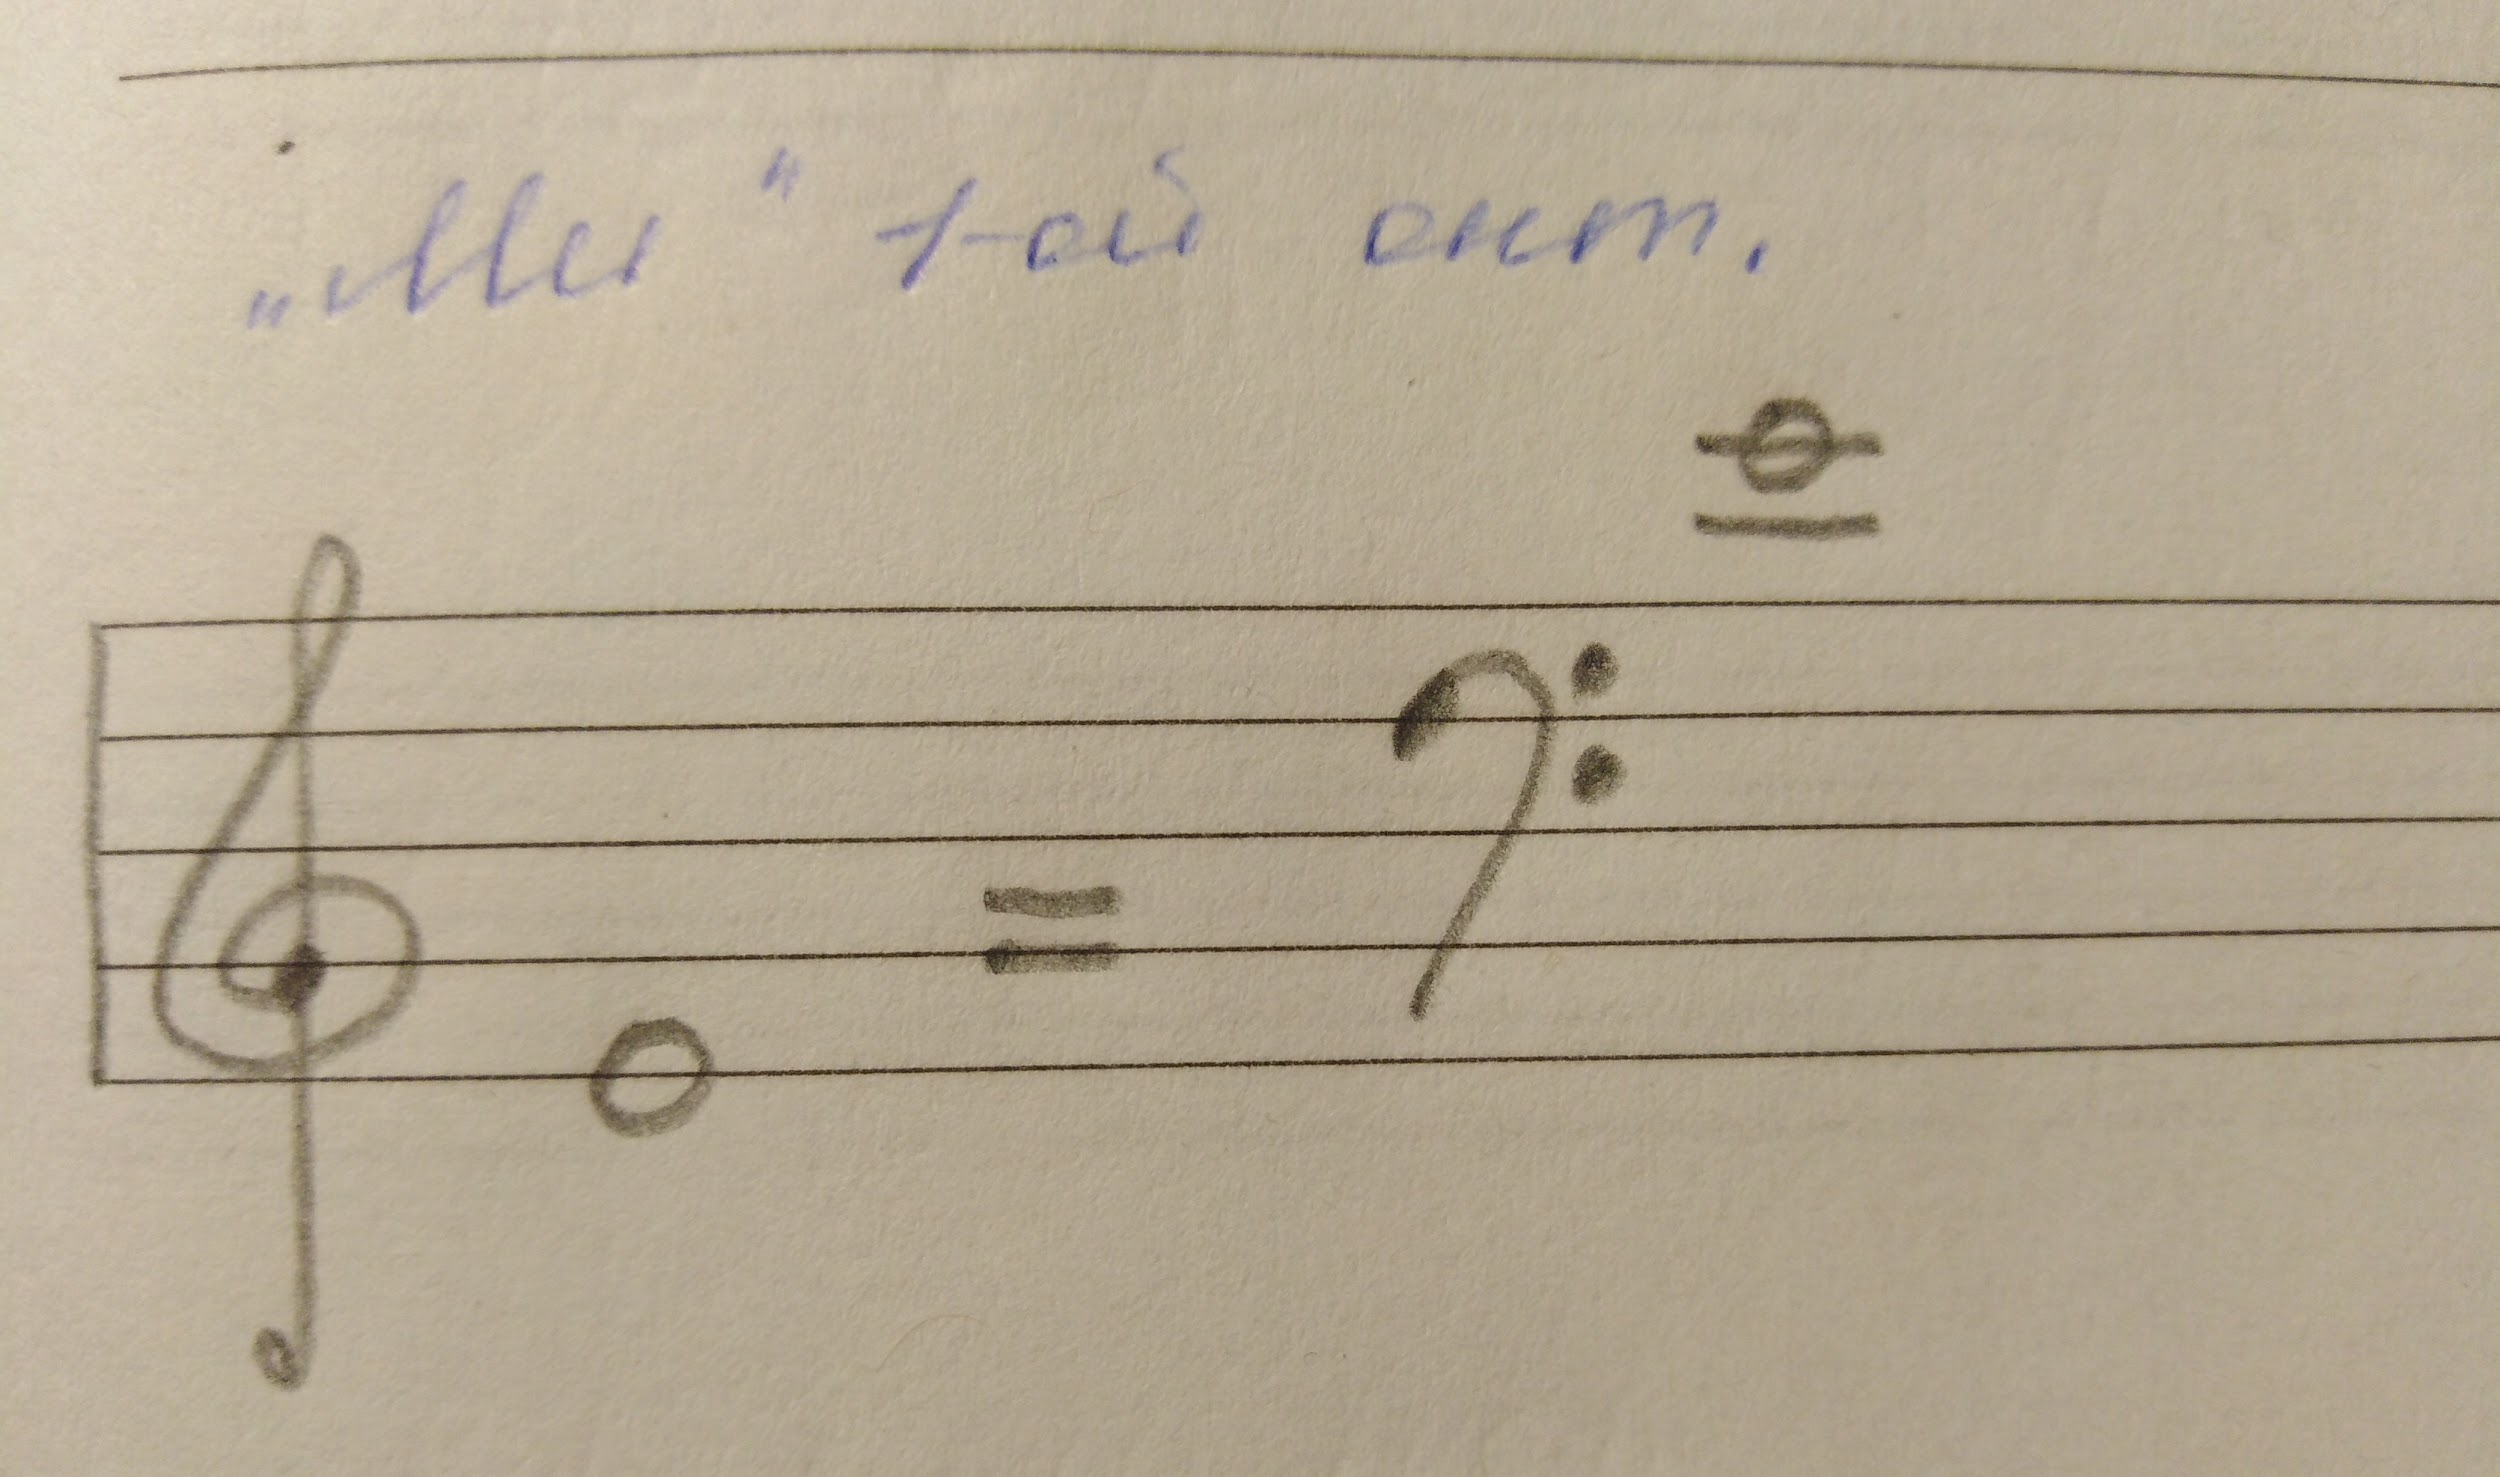 „Ми" 1-ой окт.